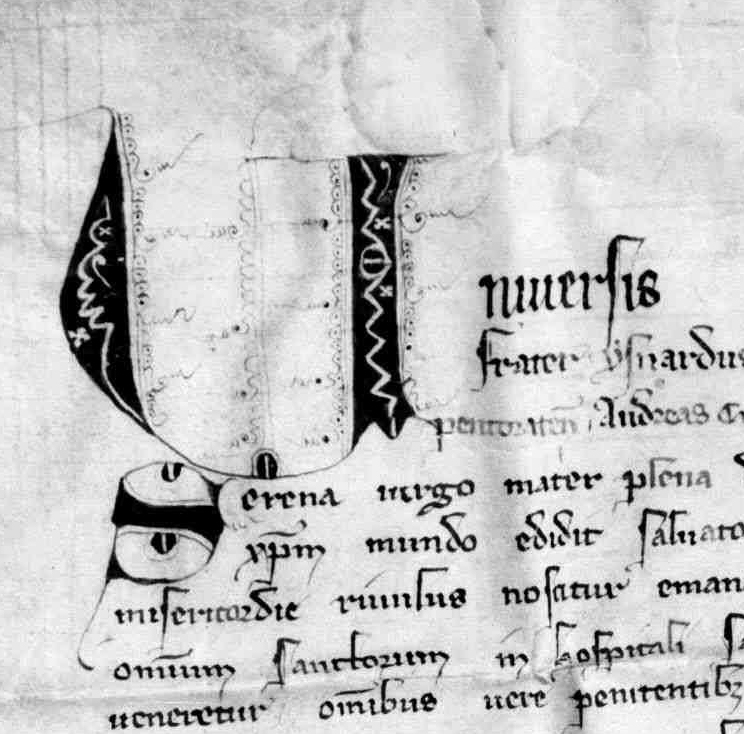 Universis
frater ysnardus
Andreas
Serena uirgo mater plena
xp̄m mundo edidit saluato
misericordie riuulus noscitur eman
om̄ium sanctorum in hospitali
ueneretur om̄ibus uere penitentibꝫ